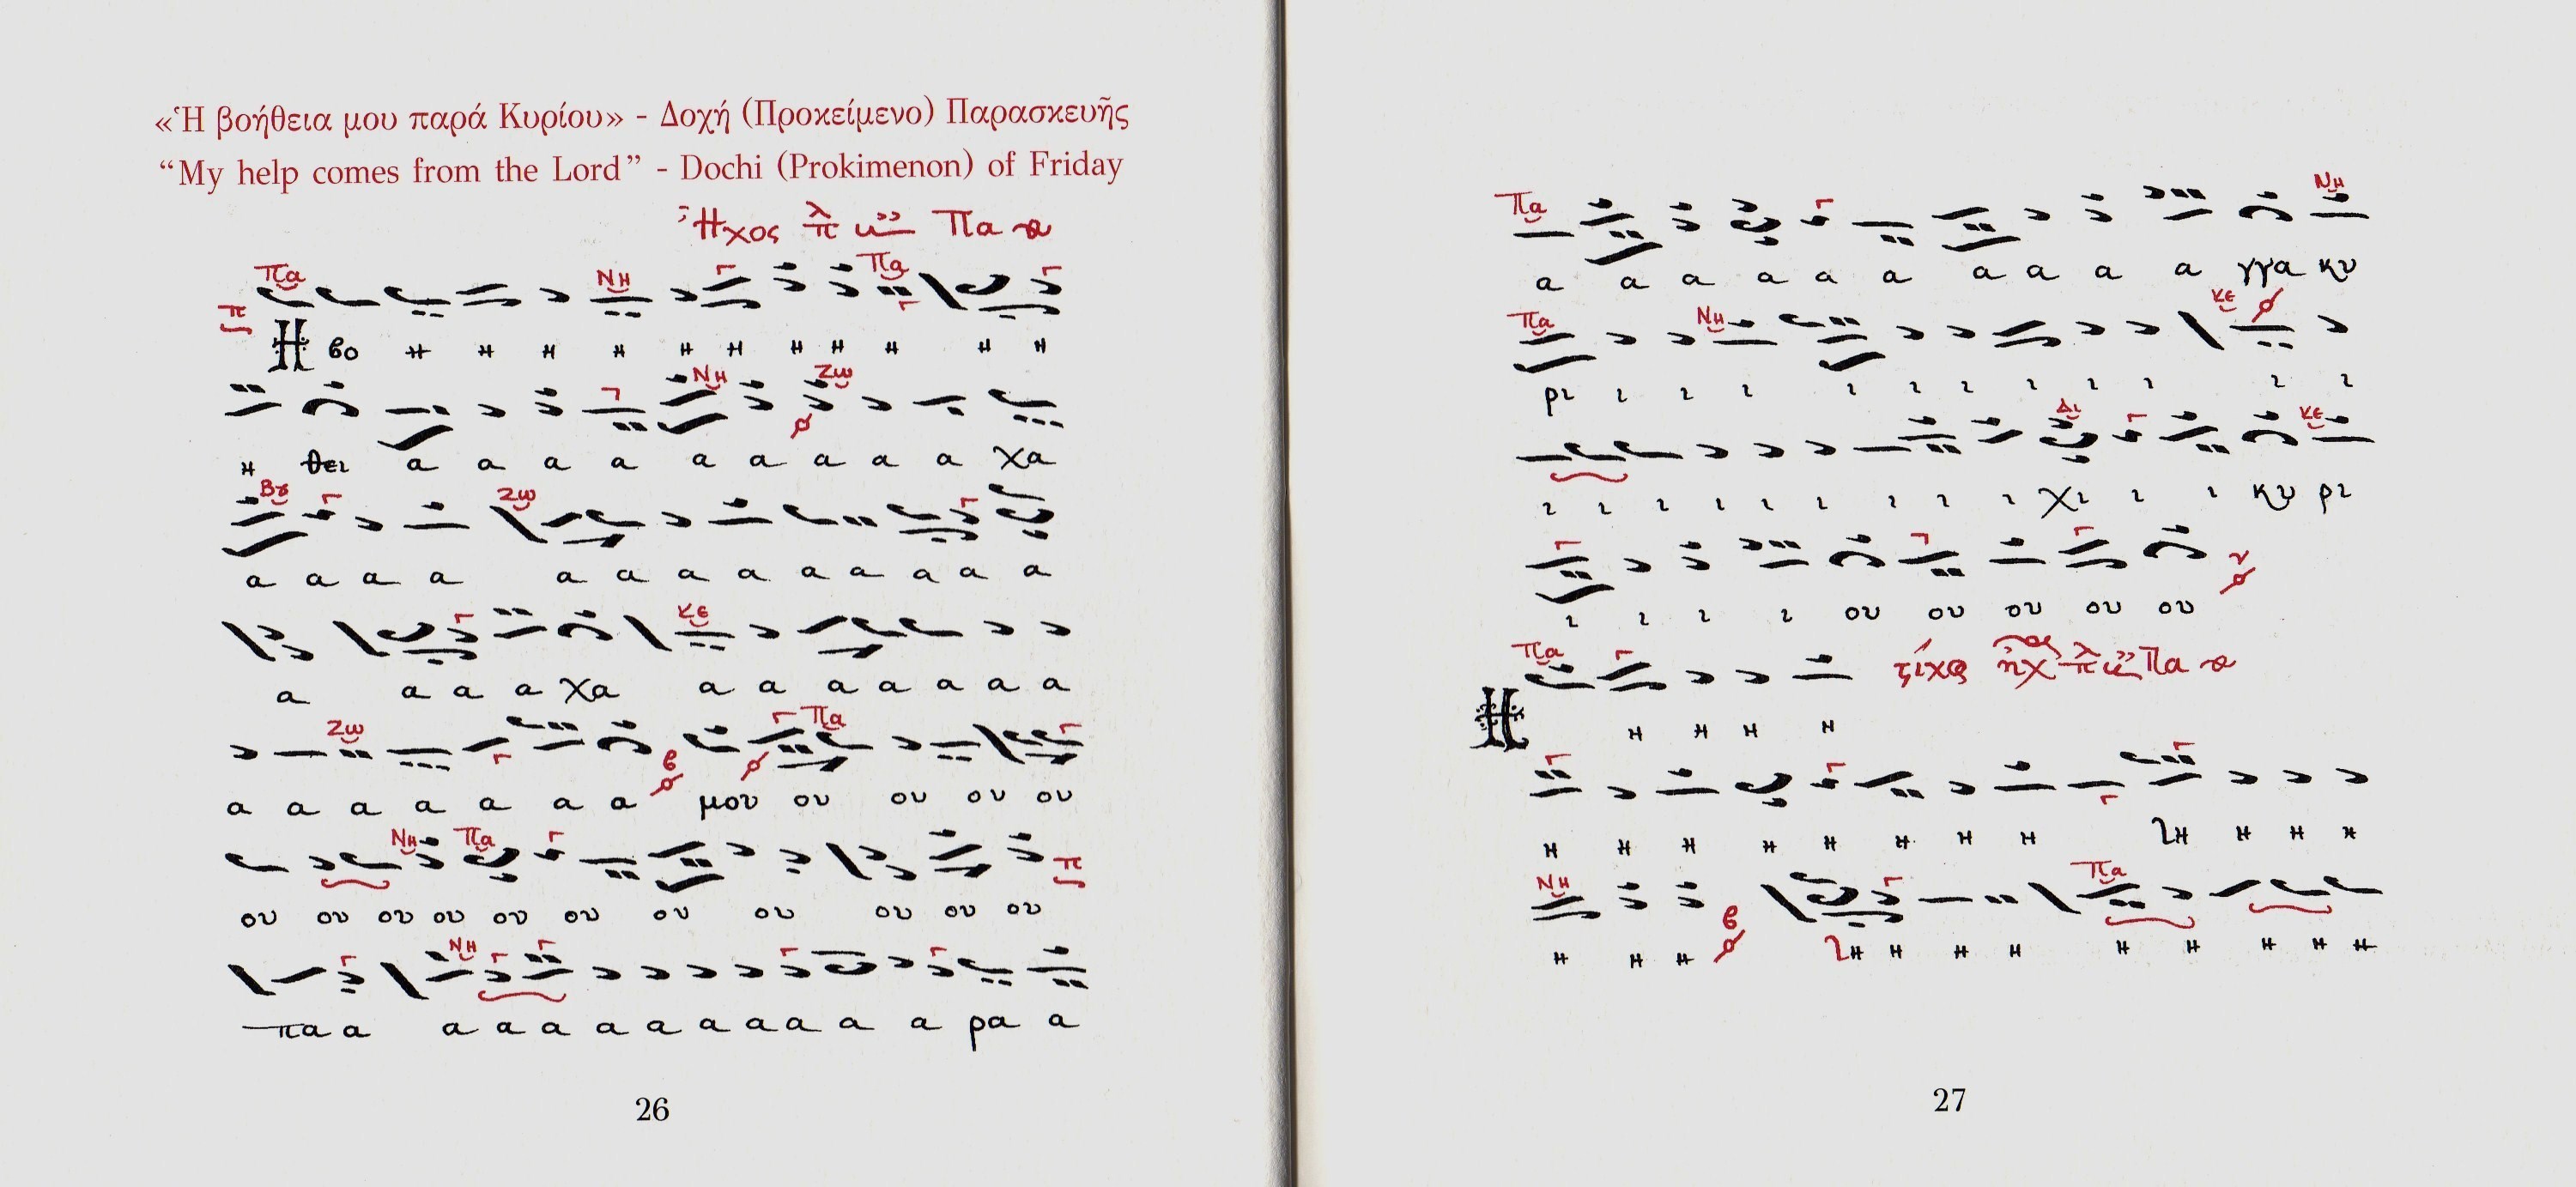 «Ἡ βοήθεια μου παρά Κυρίου» - Δοχή (Προκείμενο) Παρασκευῆς
“My help comes from the Lord” - Dochi (Prokimenon) of Friday
Ἦχος πλ Πα
Πα ΝΗ Πα
Η βο η η η η η η η η η η η
ΝΗ Ζω
η θει α α α α α α α α α χα
Βȣ Ζω
α α α α α α α α α α α α α
κε
α α α α χα α α α α α α α
Ζω Πα
α α α α α α α μου ου ου ου ου
ΝΗ Πα
ου ου ου ου ου ου ου ου ου ου ου
ΝΗ
πα α α α α α α α α α α α ρα α
26
Πα ΝΗ
α α α α α α α α α α γγα κυ
Πα ΝΗ κε
ρι ι ι ι ι ι ι ι ι ι ι ι
Δι κε
ι ι ι ι ι ι ι ι ι χι ι ι κυ ρι
ι ι ι ι ου ου ου ου ου
Πα στίχος ἦχ πλ Πα
Η η η η η
η η η η η η η η η η η η
ΝΗ Πα
η η η η η η η η η η η η
27